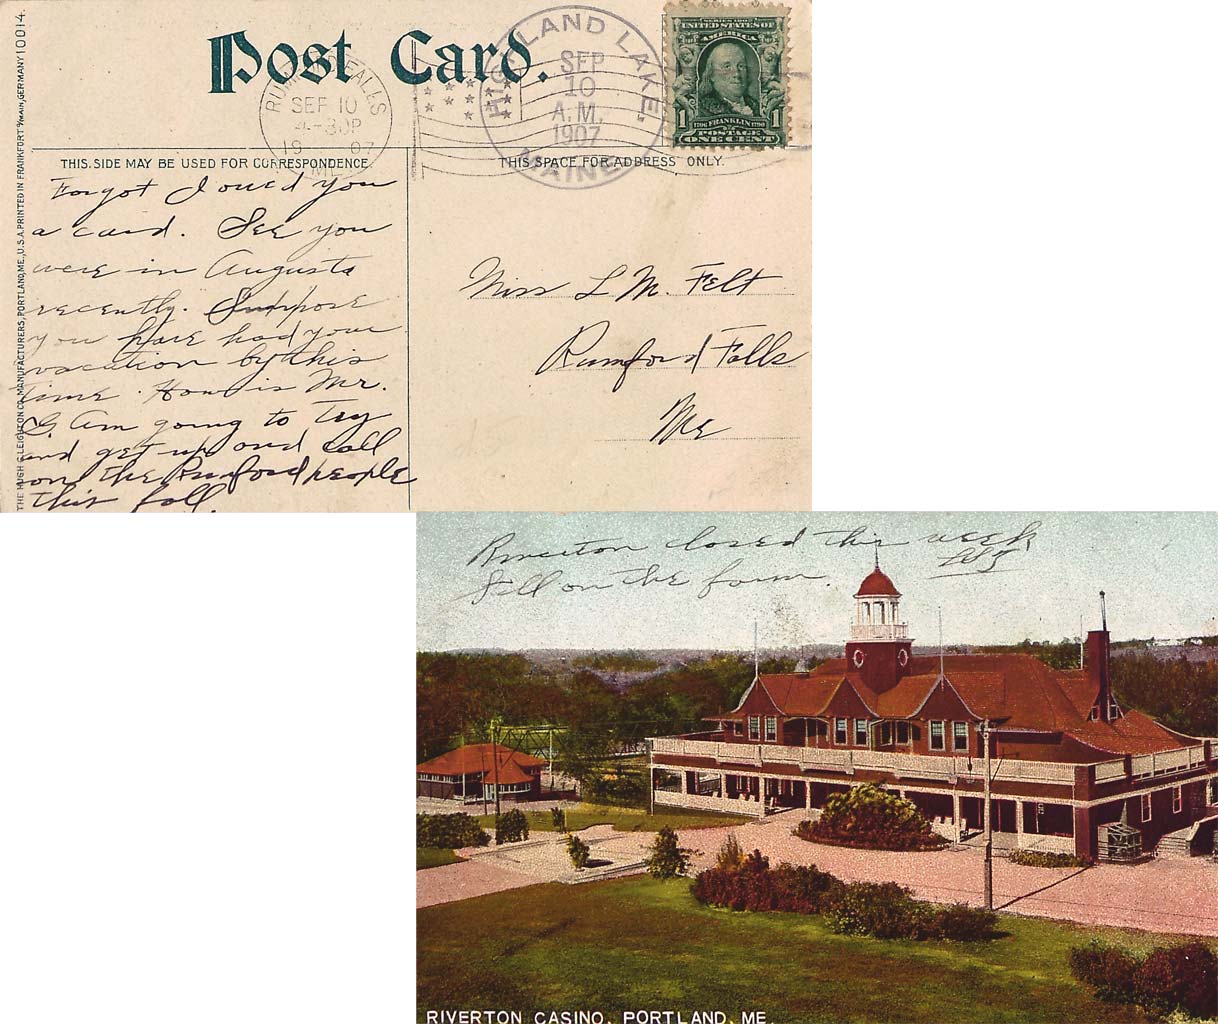 Post Card.
HIGHLAND LAKE,
SEP
10
A.M.
1907
MAINE
RUMFORD FALLS
SEP 10
4-30P
1907
ME.
SERIES 1902
UNITED STATES OF
AMERICA
1 1706 FRANKLIN 1790 1
POSTAGE
ONE CENT
THIS SIDE MAY BE USED FOR CORRESPONDENCE.
THIS SPACE FOR ADDRESS ONLY.
THE HUGH C. LEIGHTON CO., MANUFACTURERS, PORTLAND, ME., U.S.A. PRINTED IN FRANKFORT o/MAIN, GERMANY 10014.
Forgot I owed you
a card. See you
were in Augusta
recently. Suppose
you have had your
vacation by this
time. How is Mr.
G Am going to try
and get up and call
on the Rumford people
this fall.
Miss L M. Felt
Rumford Falls
Me
Riverton closed this week
Still on the farm.
RIVERTON CASINO, PORTLAND, ME.